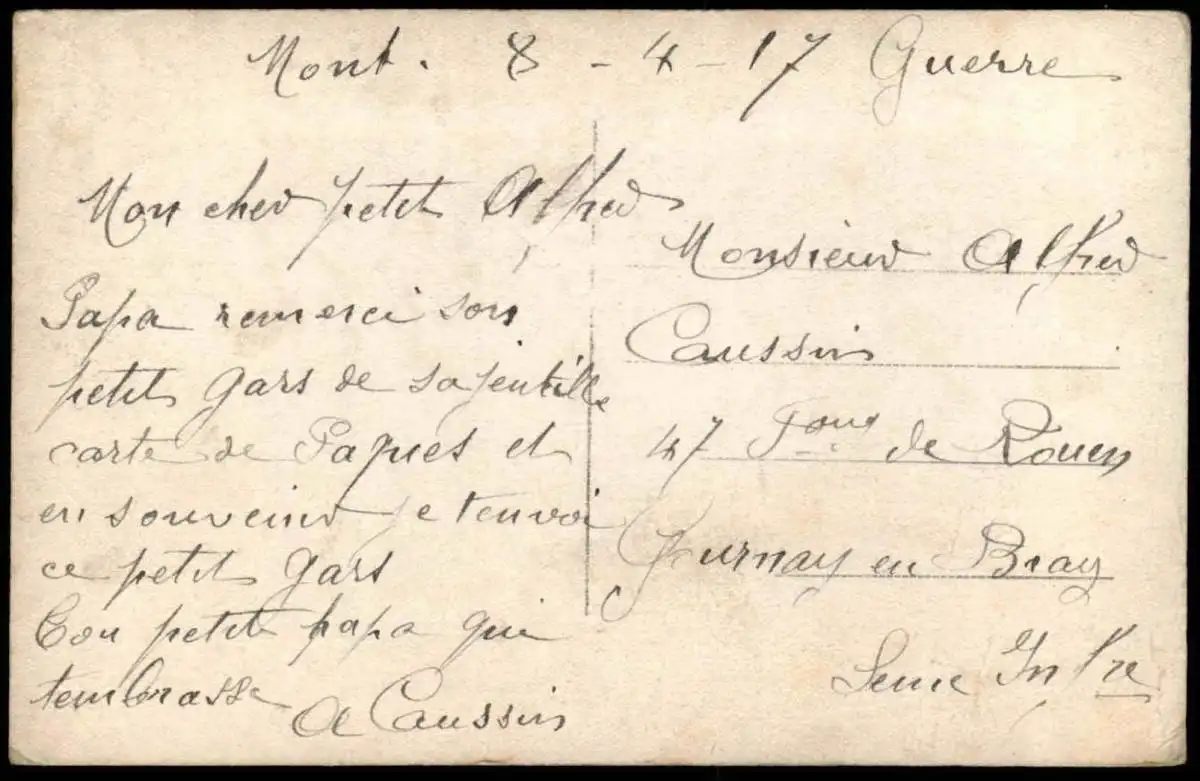 Mont. 8 - 4 - 17 Guerre
Mon cher petit Alfred
Papa remerci son
petit gars de sa jentille
carte de Paques et
en souveinir je tenvoi
ce petit gars
Ton petit papa qui
tembrasse
A Caussin
Monsieur Alfred
Caussin
47 Foug de Rouen
Gournay en Bray
Seine Infre